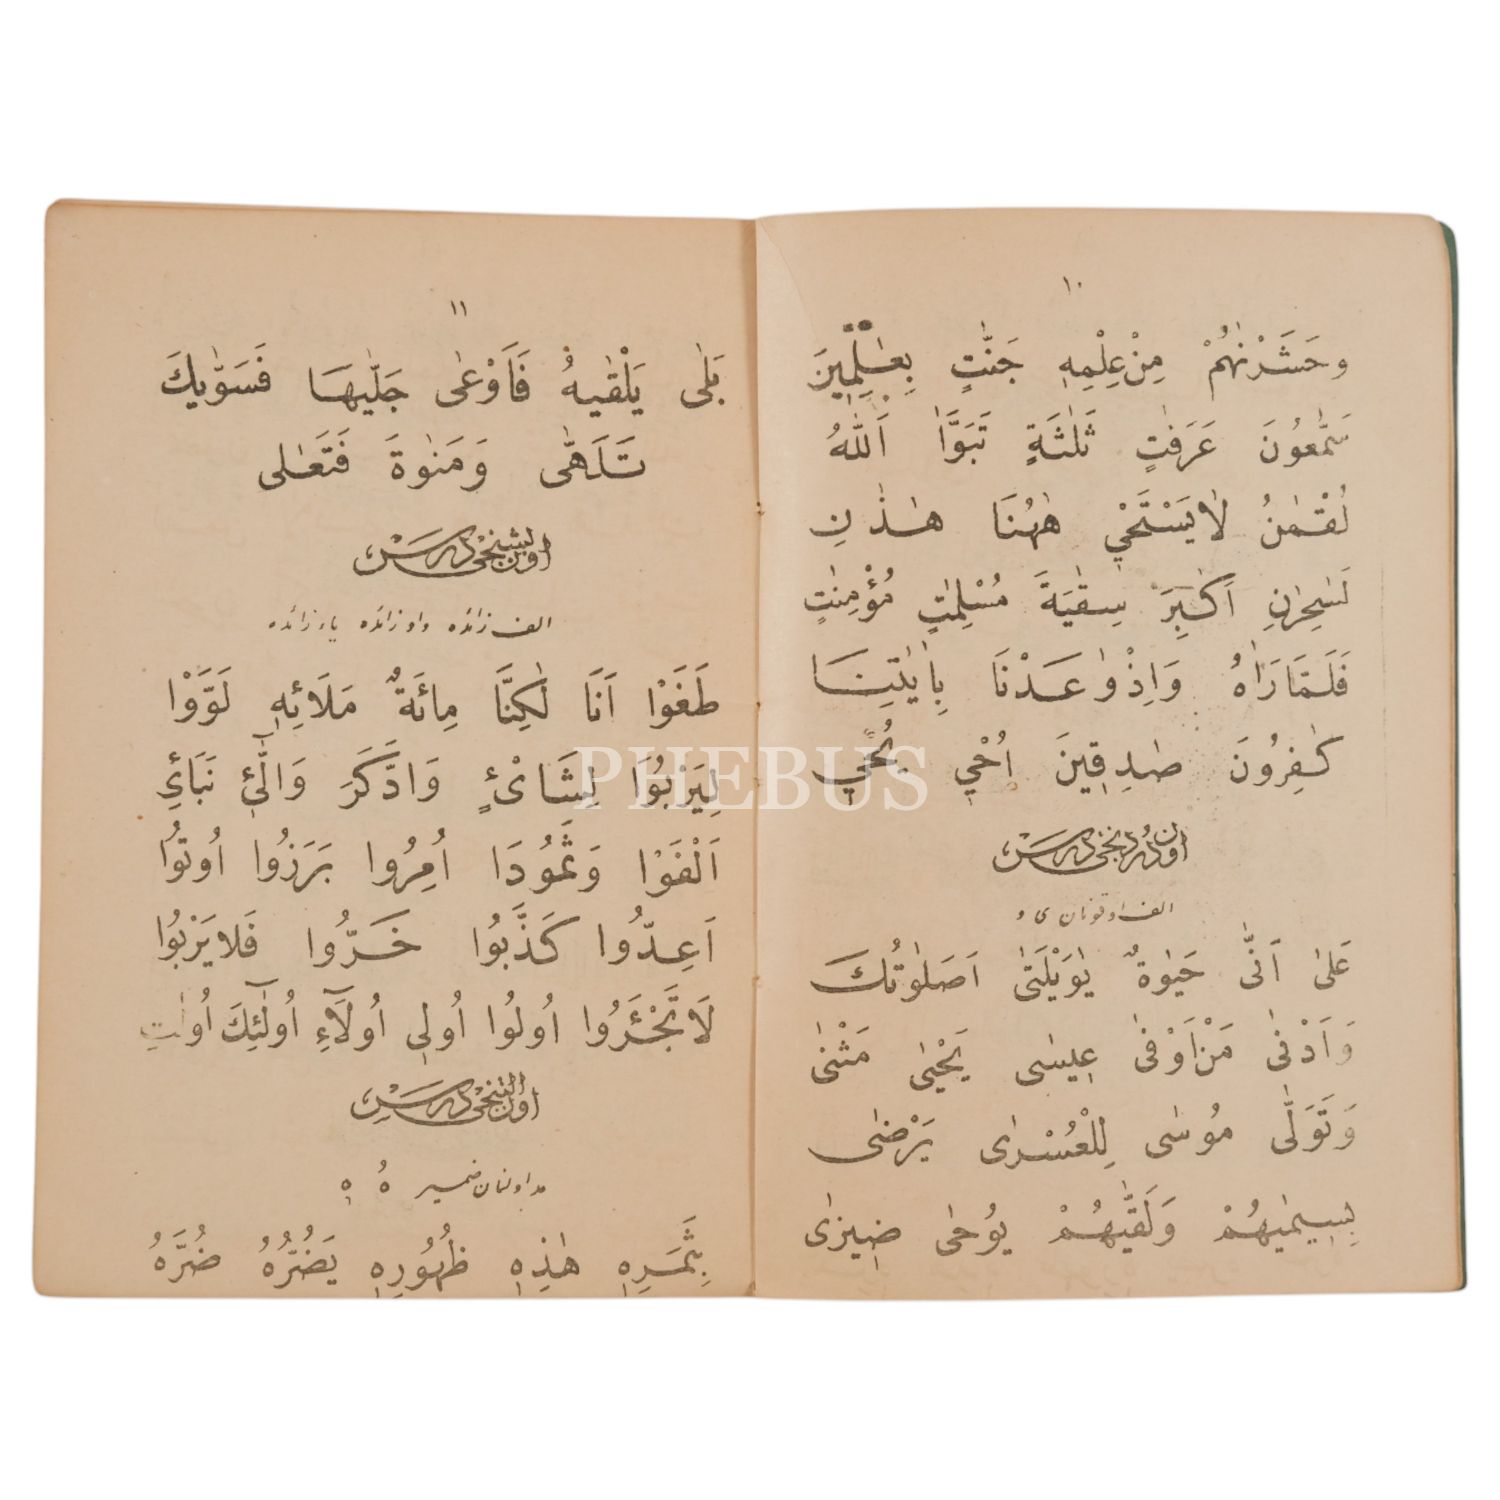 ١٠
وَحَشَرْنٰهُمْ مِنْ عِلْمِهٖ جَنّٰتٍ بِعٰلِمٖينَ
سَمّٰعُونَ عَرَفٰتٍ ثَلٰثَةٍ تَبَوَّاٰ اَللّٰهُ
لُقْمٰنُ لَا يَسْتَحْيٖ هٰهُنَا هٰذٰنِ
لَسٰحِرٰنِ اَكٰبِرَ سِقٰيَةَ مُسْلِمٰتٍ مُؤْمِنٰتٍ
فَلَمَّا رَاٰهُ وَاِذْ وٰعَدْنَا بِاٰيٰتِنَا
كٰفِرُونَ صٰدِقٖينَ اُحْيٖ يُحْيٖ
اون دردنجى درس
الف اوقونان ى و
عَلٰى اَنّٰى حَيٰوةٌ يٰوَيْلَتٰى اَصَلٰوتُكَ
وَاَدْنٰى مَنْ اَوْفٰى عٖيسٰى يَحْيٰى مَثْنٰى
وَتَوَلّٰى مُوسٰى لِلْعُسْرٰى يَرْضٰى
بِسٖيمٰيهُمْ وَلَقّٰيهُمْ يُوحٰى ضٖيزٰى
١١
بَلٰى يَلْقٰيهُ فَاَوْعٰى جَلّٰيهَا فَسَوّٰيكَ
تَلَهّٰى وَمَنٰوةَ فَتَعَالٰى
اون بشنجى درس
الف زائده واو زائده ياء زائده
طَغَوْا اَنَا لٰكِنَّا مِائَةٌ مَلَائِهٖ لَوَّوْا
لِيَرْبُوَا لِشَاىْءٍ وَادَّكَرَ وَالّٰئٖ نَبَائِ
اَلْفَوْا وَثَمُودَا اُمِرُوا بَرَزُوا اُوتُوا
اَعِدُّوا كَذَّبُوا خَرُّوا فَلَا يَرْبُوا
لَا تَجْئَرُوا اُولُوا اُولِى اُولَاۤءِ اُولٰۤئِكَ اُولٰتِ
اون التنجى درس
مد اولنان ضمير هُ هٖ
بِثَمَرِهٖ هٰذِهٖ ظُهُورِهٖ يَضُرُّهُ ضُرَّهُ
PHEBUS